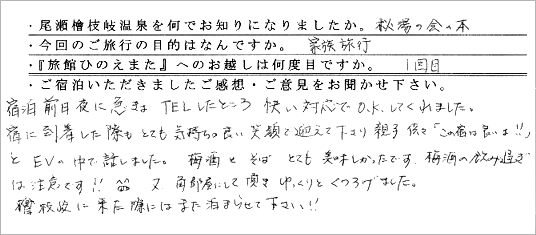 ・尾瀬檜枝岐温泉を何でお知りになりましたか。 秘湯の会の本
・今回のご旅行の目的はなんですか。 家族旅行
・『旅館ひのえまた』へのお越しは何度目ですか。 1回目
・ご宿泊いただきましたご感想・ご意見をお聞かせ下さい。
宿泊前日夜に急きょTELしたところ 快い対応でO.K.してくれました。
宿に到着した際も とても気持ちの良い笑顔で迎えて下さり 親子供で「この宿は良いョ!!」
と EVの中で話しました。 梅酒と そば とても美味しかったです。梅酒の飲み過ぎ
は注意です!! 又 角部屋にして頂き ゆっくりとくつろげました。
檜枝岐に来た際には また泊まらせて下さい!!